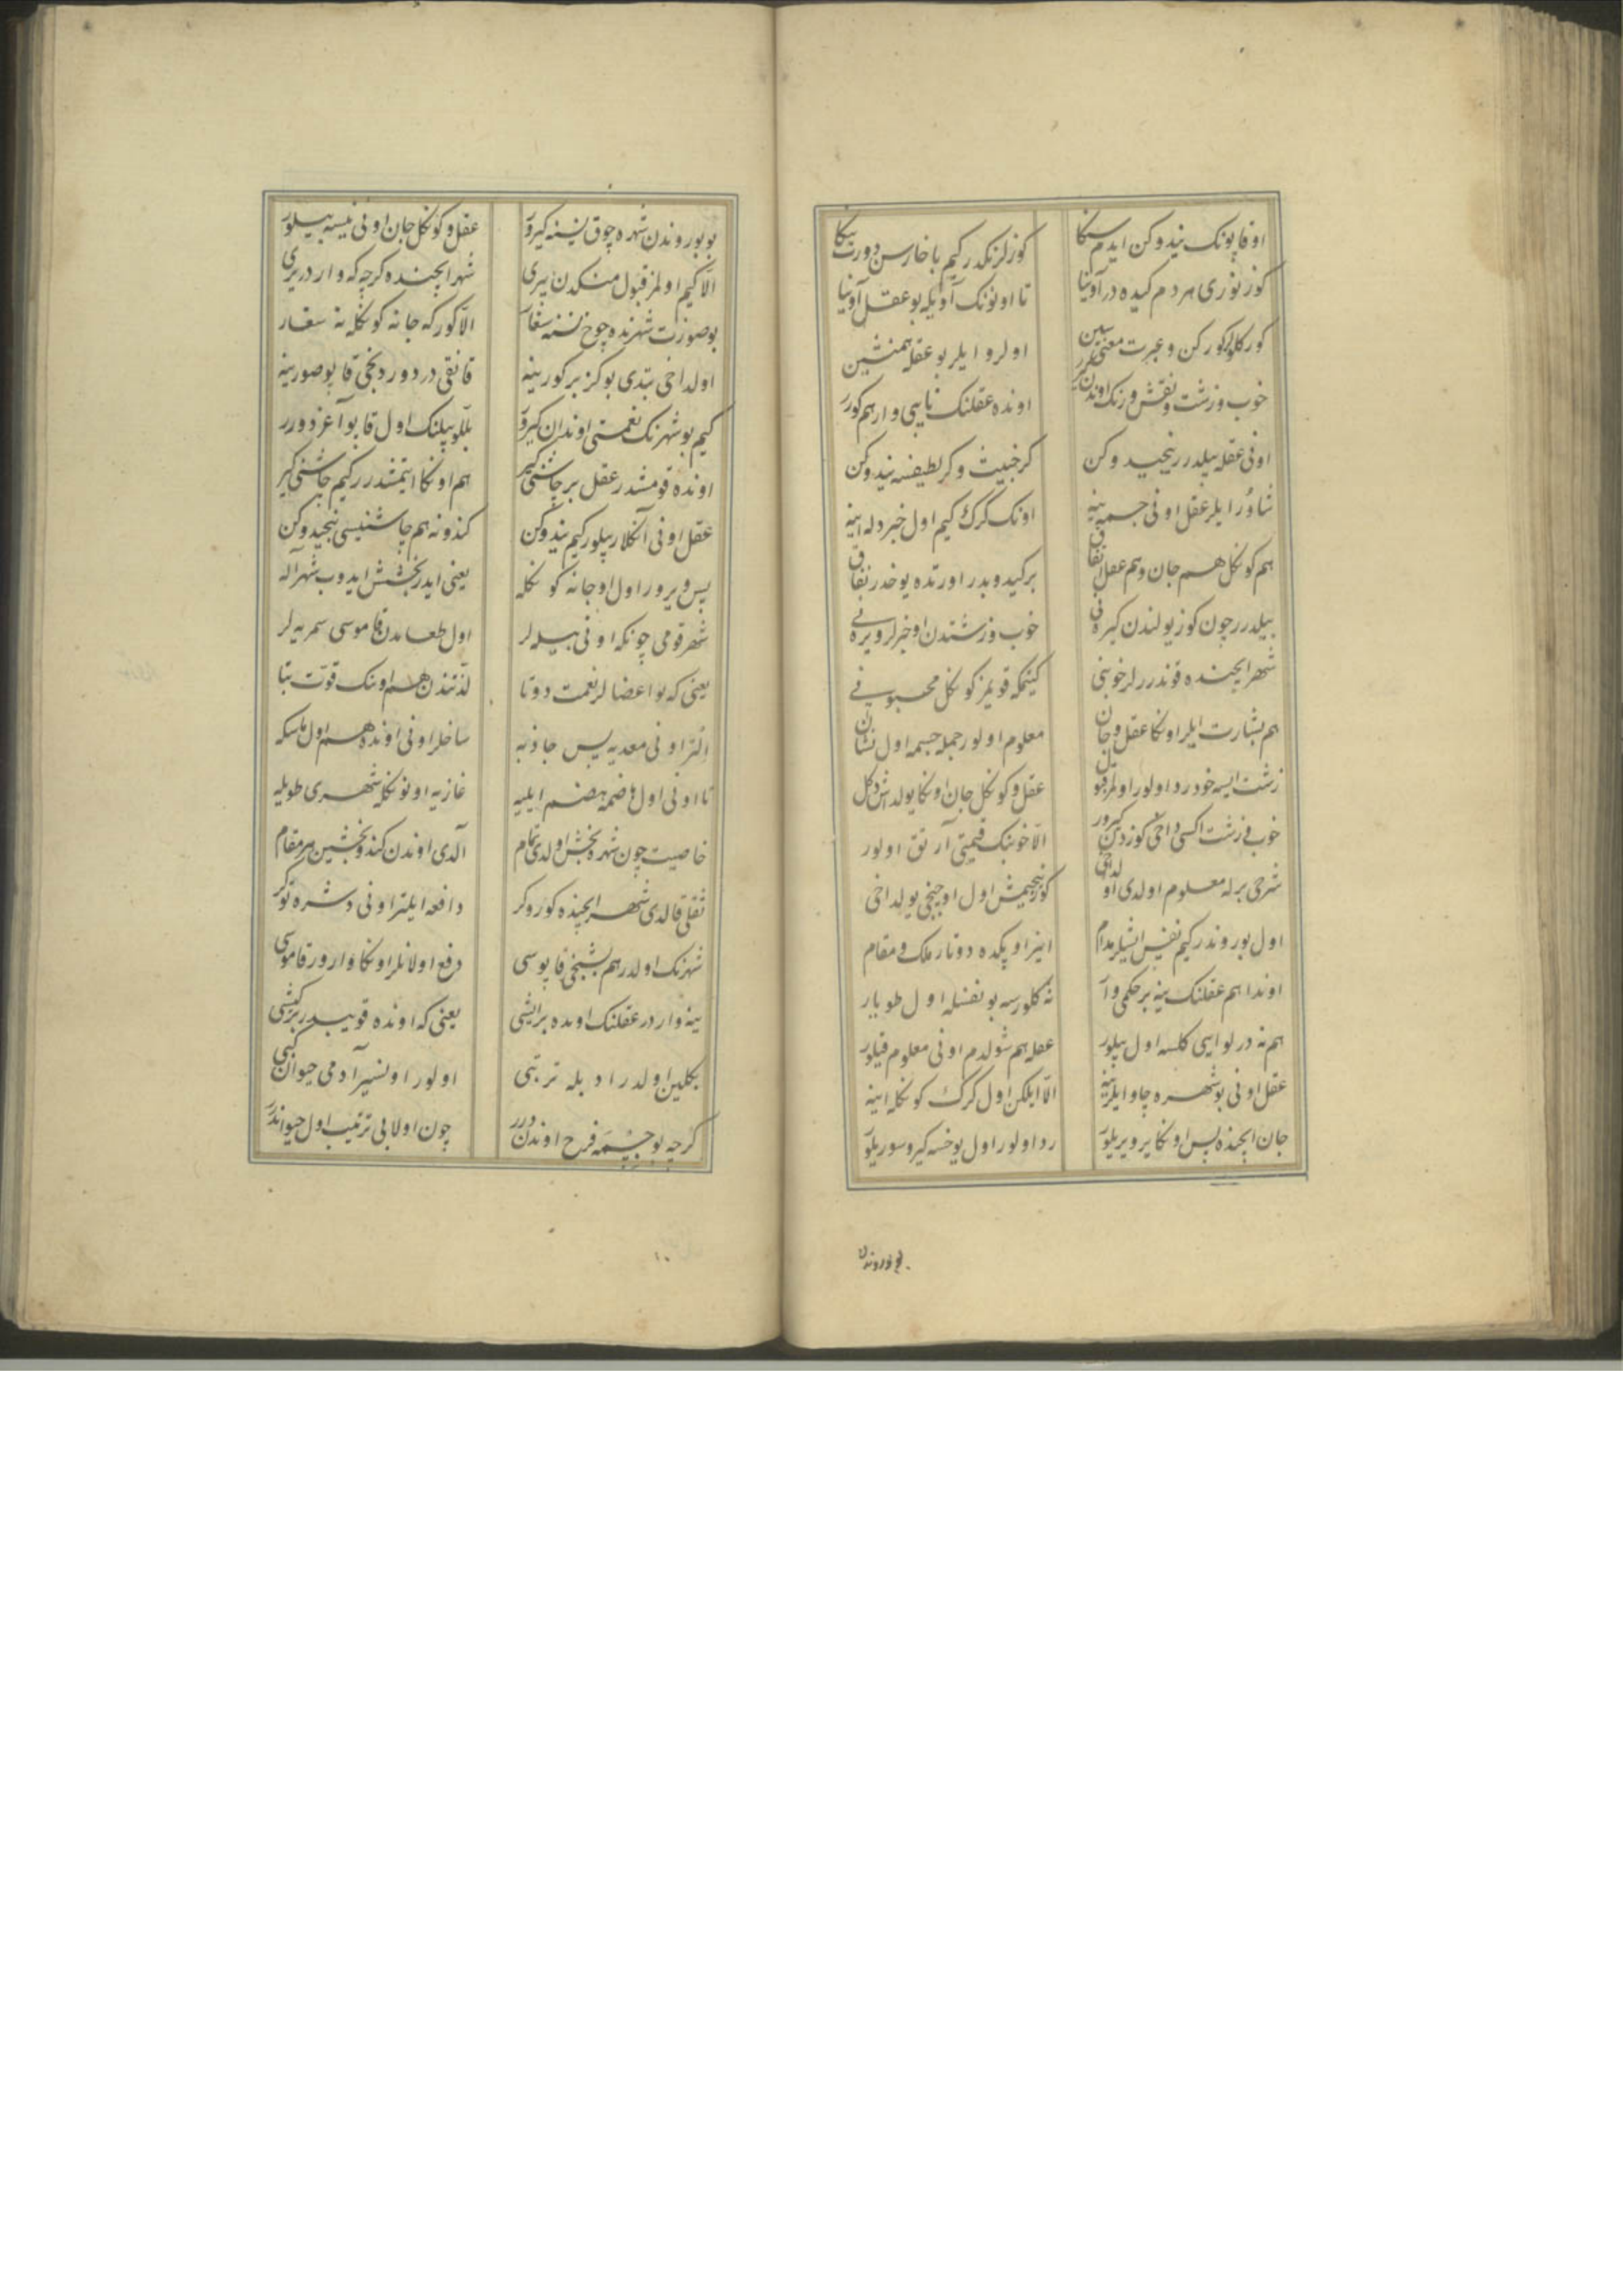 اوقاپونك نيدوكن ايدم سكا كوزلرنكدر كيم باخارسن دورت يكا
كوز نوری هر دم كيده در آونيا تا اونونك آويله بو عقل آونيا
كوركلولر كوركن و عبرت معنی سين اولر و ايلر بو عقله همنشين
خوب و زشت و نقش و رنك اوندن كيرر اونده عقلنك نايبی وار هم كورر
اونی عقله بيلدرر نيجيدوكن كر خبيث و كر لطيفسه نيدوكن
شاوُر ايلر عقل اونی جسمه ينه اونك كرك كيم اول خبر دله اينه
هم كونكل هم جان و هم عقل اتفاق بر كيدوبدر اورتده يوخدر نفاق
بيلدرر چون كوز يولندن كيره نی خوب و زشتدن او خبرلر ويره نی
شهر ايچنده قوندررلر خوبنی كيمكه قويمز كونكل محبوبنی
هم بشارت ايلر اونكا عقل و جان معلوم اولور جمله جسمه اول نشان
زشت ايسه خود رد اولور اولمز قبول عقل و كونكل جان اونكا يولداش دكل
خوب و زشت اكسی داخی كوزدن كيرور الا خوبنك قيمتی آرتق اولور
شرحی برله معلوم اولدی اولداخی كور نيجيمش اول اوچنجی يولداخی
اول بوروندر كيم نفس ايشلر مدام اينر اوپكده دوتار ملك و مقام
اوندا هم عقلنك ينه بر حكمی وار نه كلورسه بو نفسله اول طويار
هم نه درلو ايسی كلسه اول بيلور عقله هم شولدم اونی معلوم قيلور
عقل اونی بو شهره چاو ايلر ينه الا ايلكن اول كرك كونكله اينه
جان ايچنده پس اونكا ير ويريلور رد اولور اول يوخسه كيرو سوريلور
بوروندن
بو بوروندن شهره چوق نسنه كيرور عقل و كونكل جان اونی نيسه بيلور
الا كيم اولمز قبول منكدن بيری شهر ايچنده كرچه كه واردر يری
بو صورت شهرنده چوخ نسنه سغار الا كوركه جانه كونكله نه سغار
اولداخی بتدی بو كز بر كورينه قانقی در دوردنجی قاپو صورينه
كيم بو شهرنك نعمتی اوندان كيرور بللو بيلنك اول قاپو آغز دورر
اونده قومشدر عقل بر چاشنی كير هم اونكا ايتمشدرر كيم چاشنی كير
عقل اونی آنكلار بيلور كيم نيدوكن كندونه هم چاشنيسی نيجيدوكن
پس ويرور اول اوجانه كونكله يعنی ايدر بخشش ايدوب شهر آله
شهر قومی چونكه اونی بيله لر اول طعامدن قاموسی سمريه لر
يعنی كه بو اعضالر نعمت دوتا لذتندن هم اونك قوت بتا
ايلتر اونی معديه پس جاذبه ساخلر اونی اونده هم اول ماسكه
تا اونی اول هاضمه هضم ايليه غازيه اونونكله شهری طويليه
خاصيت چون شهره بخش اولدی تمام آلدی اوندن كندو بخشين هر مقام
ثقلی قالدی شهر ايچنده كور و كر دافعه ايلتر اونی دشره توكر
شهرنك اولدر هم بشنجی قاپوسی دفع اولانلر اونكا وارور قاموسی
ينه واردر عقلنك اونده بر ايشی يعنی كه اونده قويبدر بر كشی
بكلين اولدر ادبله تربتی اولور اونسيز آدمی حيوان كبی
كرچه بو جسمه فرح اوندن درر چون اولا بی ترتيب اول حيواندرر
١٠